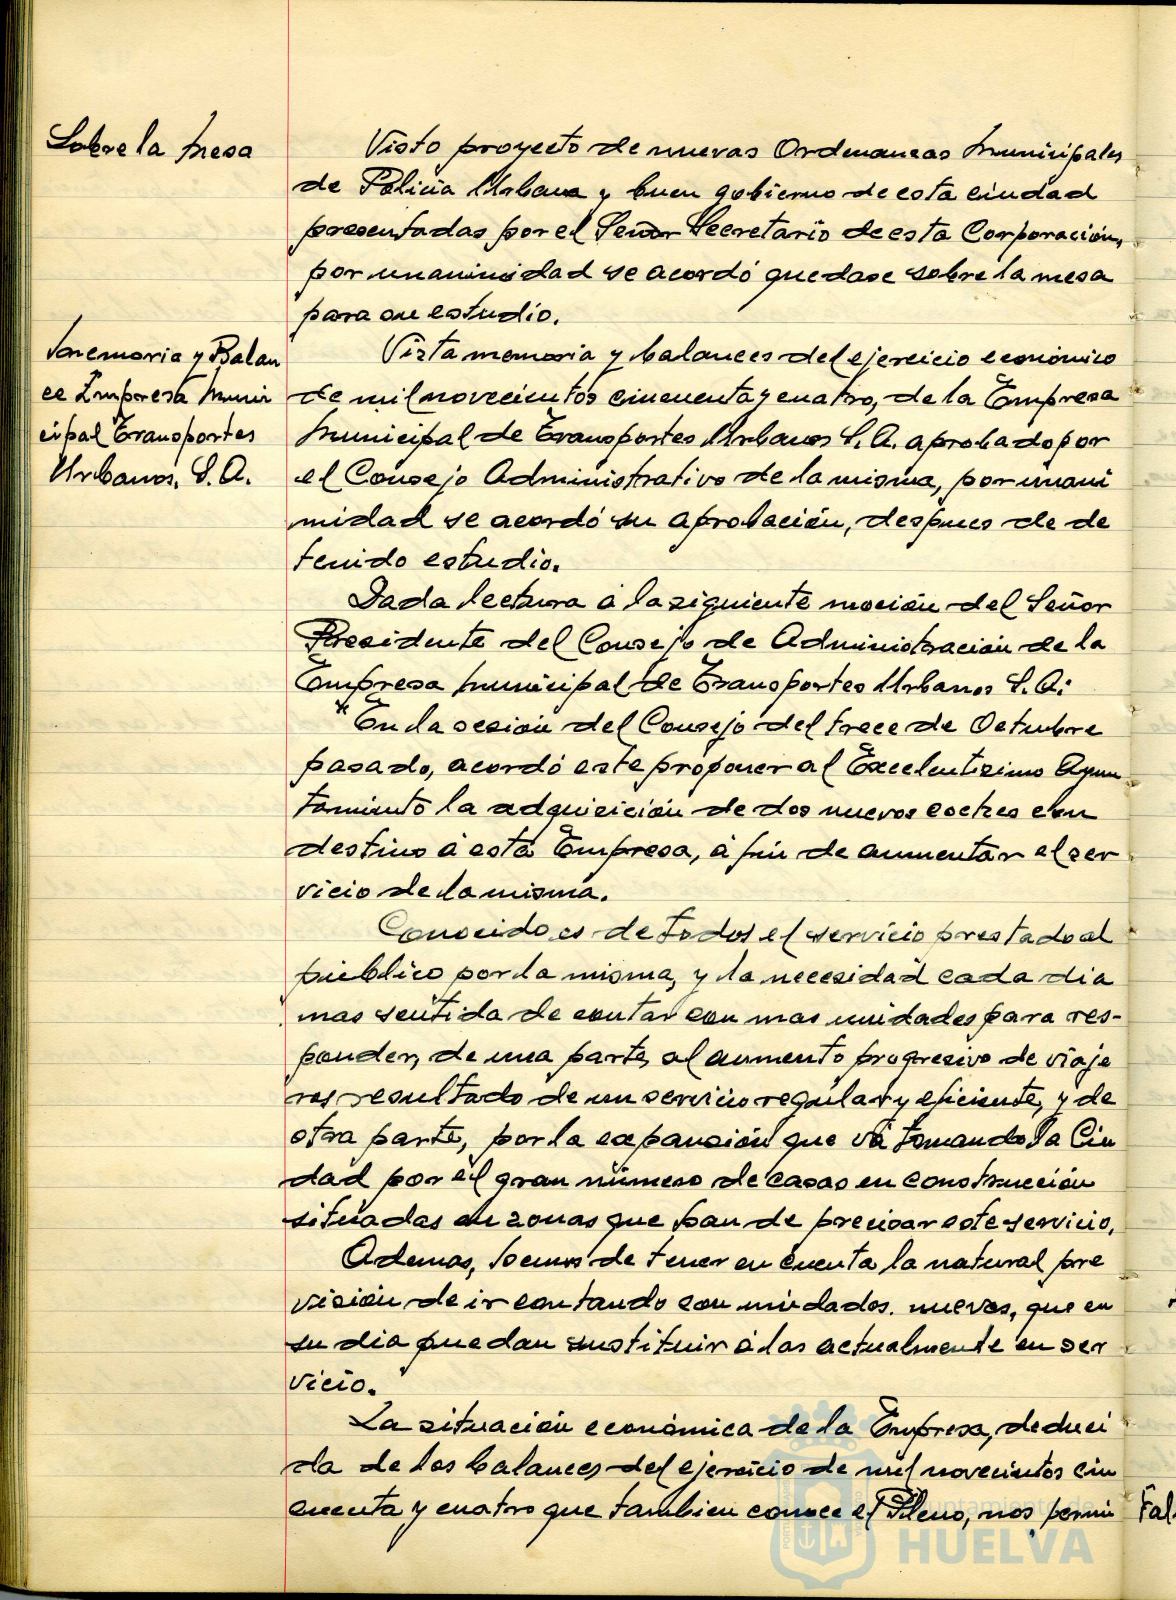 Sobre la Mesa
Visto proyecto de nuevas Ordenanzas Municipales
de Policia Urbana y buen gobierno de esta ciudad
presentadas por el Señor Secretario de esta Corporación,
por unanimidad se acordó quedase sobre la mesa
para su estudio.
Memoria y Balan
ce Empresa Muni
cipal Transportes
Urbanos, S.A.
Vista memoria y balances del ejercicio económico
de mil novecientos cincuenta y cuatro, de la Empresa
Municipal de Transportes Urbanos S.A. aprobado por
el Consejo Administrativo de la misma, por unani
midad se acordó su aprobación, despues de de
tenido estudio.
Dada lectura á la siguiente moción del Señor
Presidente del Consejo de Administración de la
Empresa Municipal de Transportes Urbanos S.A:
"En la sesión del Consejo del trece de Octubre
pasado, acordó este proponer al Excelentisimo Ayun
tamiento la adquisición de dos nuevos coches con
destino á esta Empresa, á fin de aumentar el ser
vicio de la misma.
Conocido es de todos el servicio prestado al
público por la misma, y la necesidad cada dia
mas sentida de contar con mas unidades para res-
ponder, de una parte, al aumento progresivo de viaje
ros resultado de un servicio regular y eficiente, y de
otra parte, por la expansión que vá tomando la Ciu
dad por el gran número de casas en construcción
situadas en zonas que han de precisar este servicio.
Ademas, hemos de tener en cuenta la natural pre
visión de ir contando con unidades nuevas, que en
su dia puedan sustituir á las actualmente en ser
vicio.
La situación económica de la Empresa, deduci
da de los balances del ejercicio de mil novecientos cin
cuenta y cuatro que tambien conoce el Pleno, nos permi
Fal
Ayuntamiento de
HUELVA